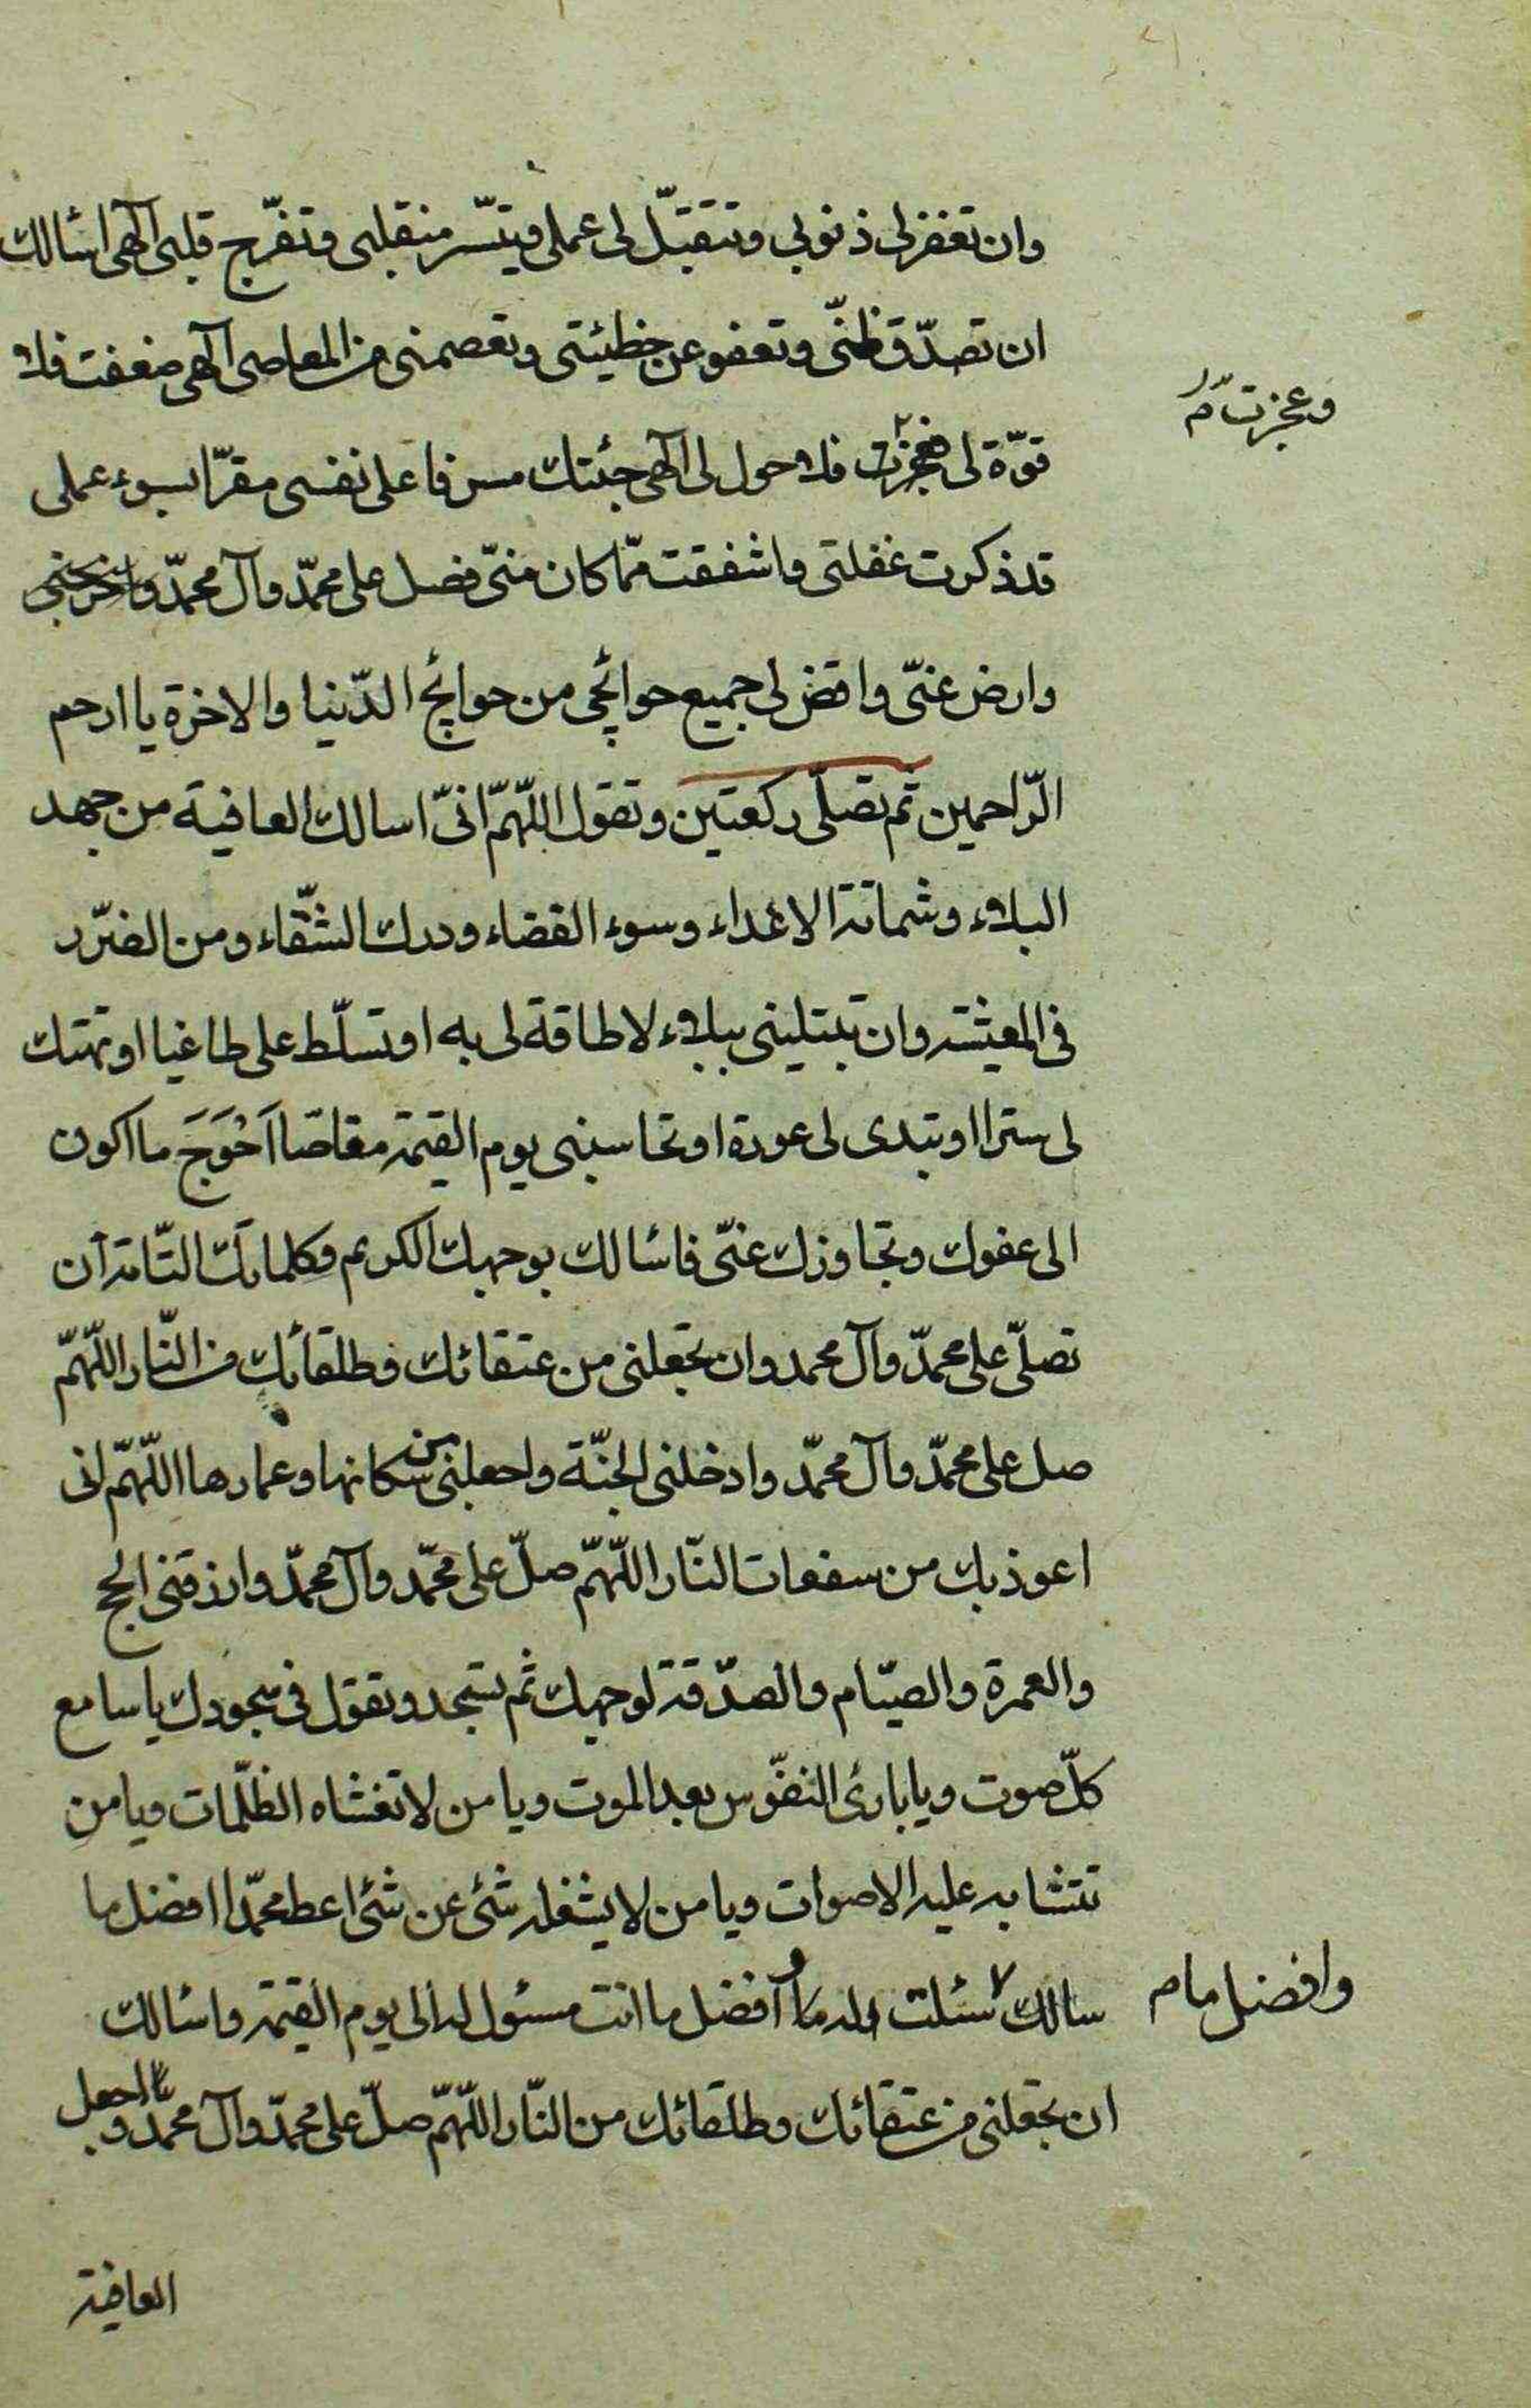 وان تغفر لی ذنوبی وتتقبّل لی عملی وتیسّر منقلبی وتفرّج قلبی آلهی اسئالك
ان تصدّق ظنّی وتعفو عن خطیئتی وتعصمنی من المعاصی آلهی ضعفت فلا
وعجزت م
قوّة لی فعجزت فلا حول لی آلهی جئتك مسرفا علی نفسی مقرّا بسوء عملی
قد ذكرت غفلتی واشفقت ممّا كان منّی فصل علی محمّد وآل محمّد
وارض عنّی واقض لی جمیع حوائجی من حوائج الدّنیا والاخرة یا ارحم
الرّاحمین ثم تصلّی ركعتین وتقول اللّهمّ انّی اسالك العافیة من جهد
البلاء وشماتة الاعداء وسوء القضاء ودرك الشّقاء ومن الضرّر
فی المعیشة وان تبتلینی ببلاء لا طاقة لی به او تسلّط علی طاغیا او تهتك
لی سترا او تبدی لی عورة او تحاسبنی یوم القیمة مقاصّا اَحْوَجَ ما اكون
الی عفوك وتجاوزك عنّی فاسئالك بوجهك الكریم وكلماتك التّامة ان
تصلّی علی محمّد وآل محمد وان تجعلنی من عتقائك وطلقائك من النّار اللّهمّ
صل علی محمّد وآل محمّد وادخلنی الجنّة واجعلنی من سكانها وعمارها اللّهمّ انی
اعوذ بك من سفعات النّار اللّهمّ صلّ علی محمّد وآل محمّد وارزقنی الحج
والعمرة والصیّام والصدّقة لوجهك ثم تسجد وتقول فی سجودك یا سامع
كلّ صوت ویا بارئ النفّوس بعد الموت ویا من لا تغشاه الظلّمات ویا من
تتشابه علیه الاصوات ویا من لا یشغله شئ عن شئ اعط محمّدا افضل ما
وافضل ما م
سالك سئلت له وما افضل ما انت مسئول له الی یوم القیمة واسئالك
ان تجعلنی من عتقائك وطلقائك من النّار اللّهمّ صلّ علی محمّد وآل محمّد واجعل
العافیة